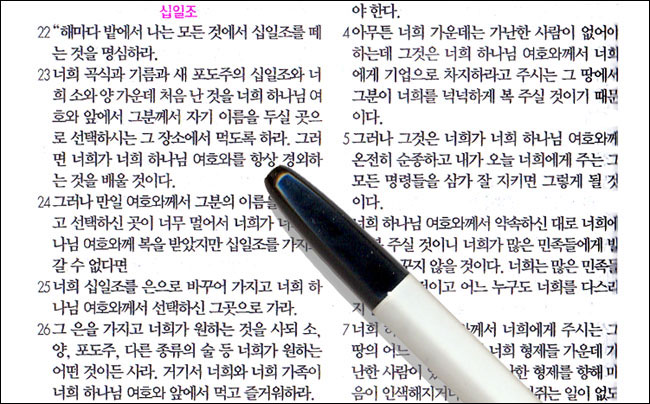 십일조
22 “해마다 밭에서 나는 모든 것에서 십일조를 떼
는 것을 명심하라.
23 너희 곡식과 기름과 새 포도주의 십일조와 너
희 소와 양 가운데 처음 난 것을 너희 하나님 여
호와 앞에서 그분께서 자기 이름을 두실 곳으
로 선택하시는 그 장소에서 먹도록 하라. 그러
면 너희가 너희 하나님 여호와를 항상 경외하
는 것을 배울 것이다.
24 그러나 만일 여호와께서 그분의 이름을
고 선택하신 곳이 너무 멀어서 너희가
나님 여호와께 복을 받았지만 십일조를
갈 수 없다면
25 너희 십일조를 은으로 바꾸어 가지고 너희 하
나님 여호와께서 선택하신 그곳으로 가라.
26 그 은을 가지고 너희가 원하는 것을 사되 소,
양, 포도주, 다른 종류의 술 등 너희가 원하는
어떤 것이든 사라. 거기서 너희와 너희 가족이
너희 하나님 여호와 앞에서 먹고 즐거워하라.
야 한다.
4 아무튼 너희 가운데는 가난한 사람이 없어야
하는데 그것은 너희 하나님 여호와께서 너희
에게 기업으로 차지하라고 주시는 그 땅에서
그분이 너희를 넉넉하게 복 주실 것이기 때문
이다.
5 그러나 그것은 너희가 너희 하나님 여호와께
온전히 순종하고 내가 오늘 너희에게 주는 그
모든 명령들을 삼가 잘 지키면 그렇게 될 것
이다.
너희 하나님 여호와께서 약속하신 대로 너희에
주실 것이니 너희가 많은 민족들에게
꾸지 않을 것이다. 너희는 많은 민족들
것이고 어느 누구도 너희를 다스리
지
7 너희 여호와께서 너희에게 주시는 그
땅의 어느 너희 형제들 가운데 가
난한 사람이 가난한 형제를 향해 마
음이 인색해지거나 쥐는 일이 없도